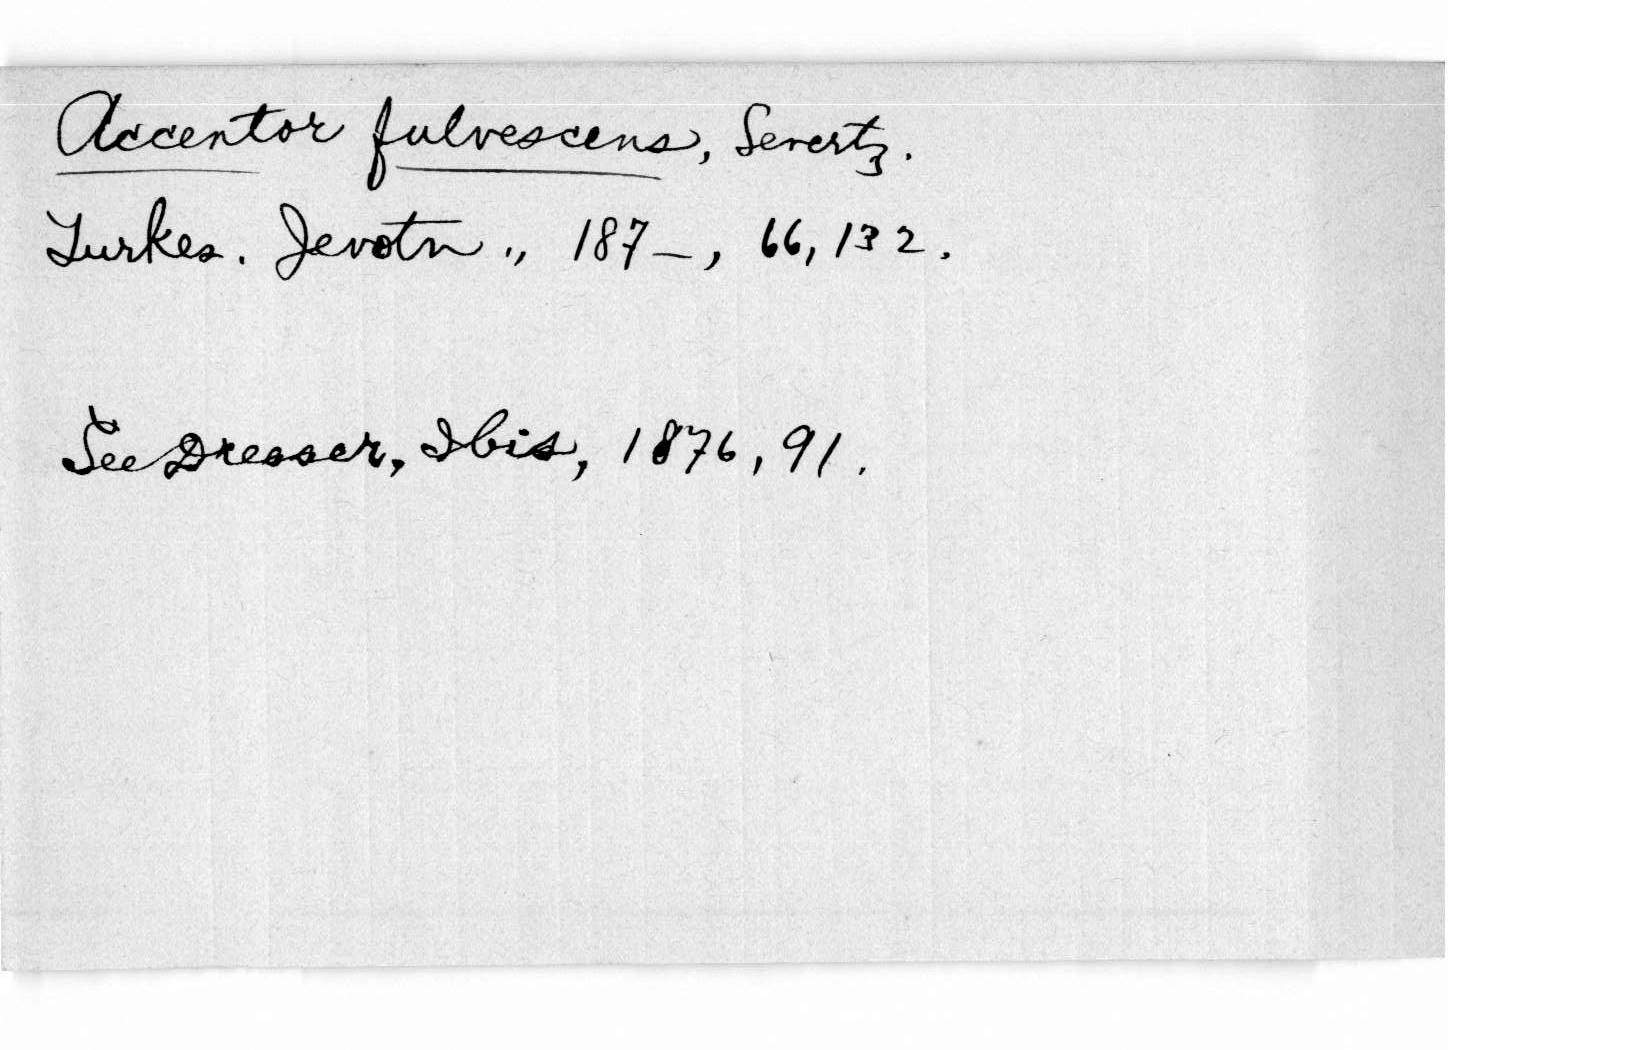 Accentor fulvescens, Severtz.
Turkes. Jevotn., 187–, 66, 132.
See Dresser, Ibis, 1876, 91.